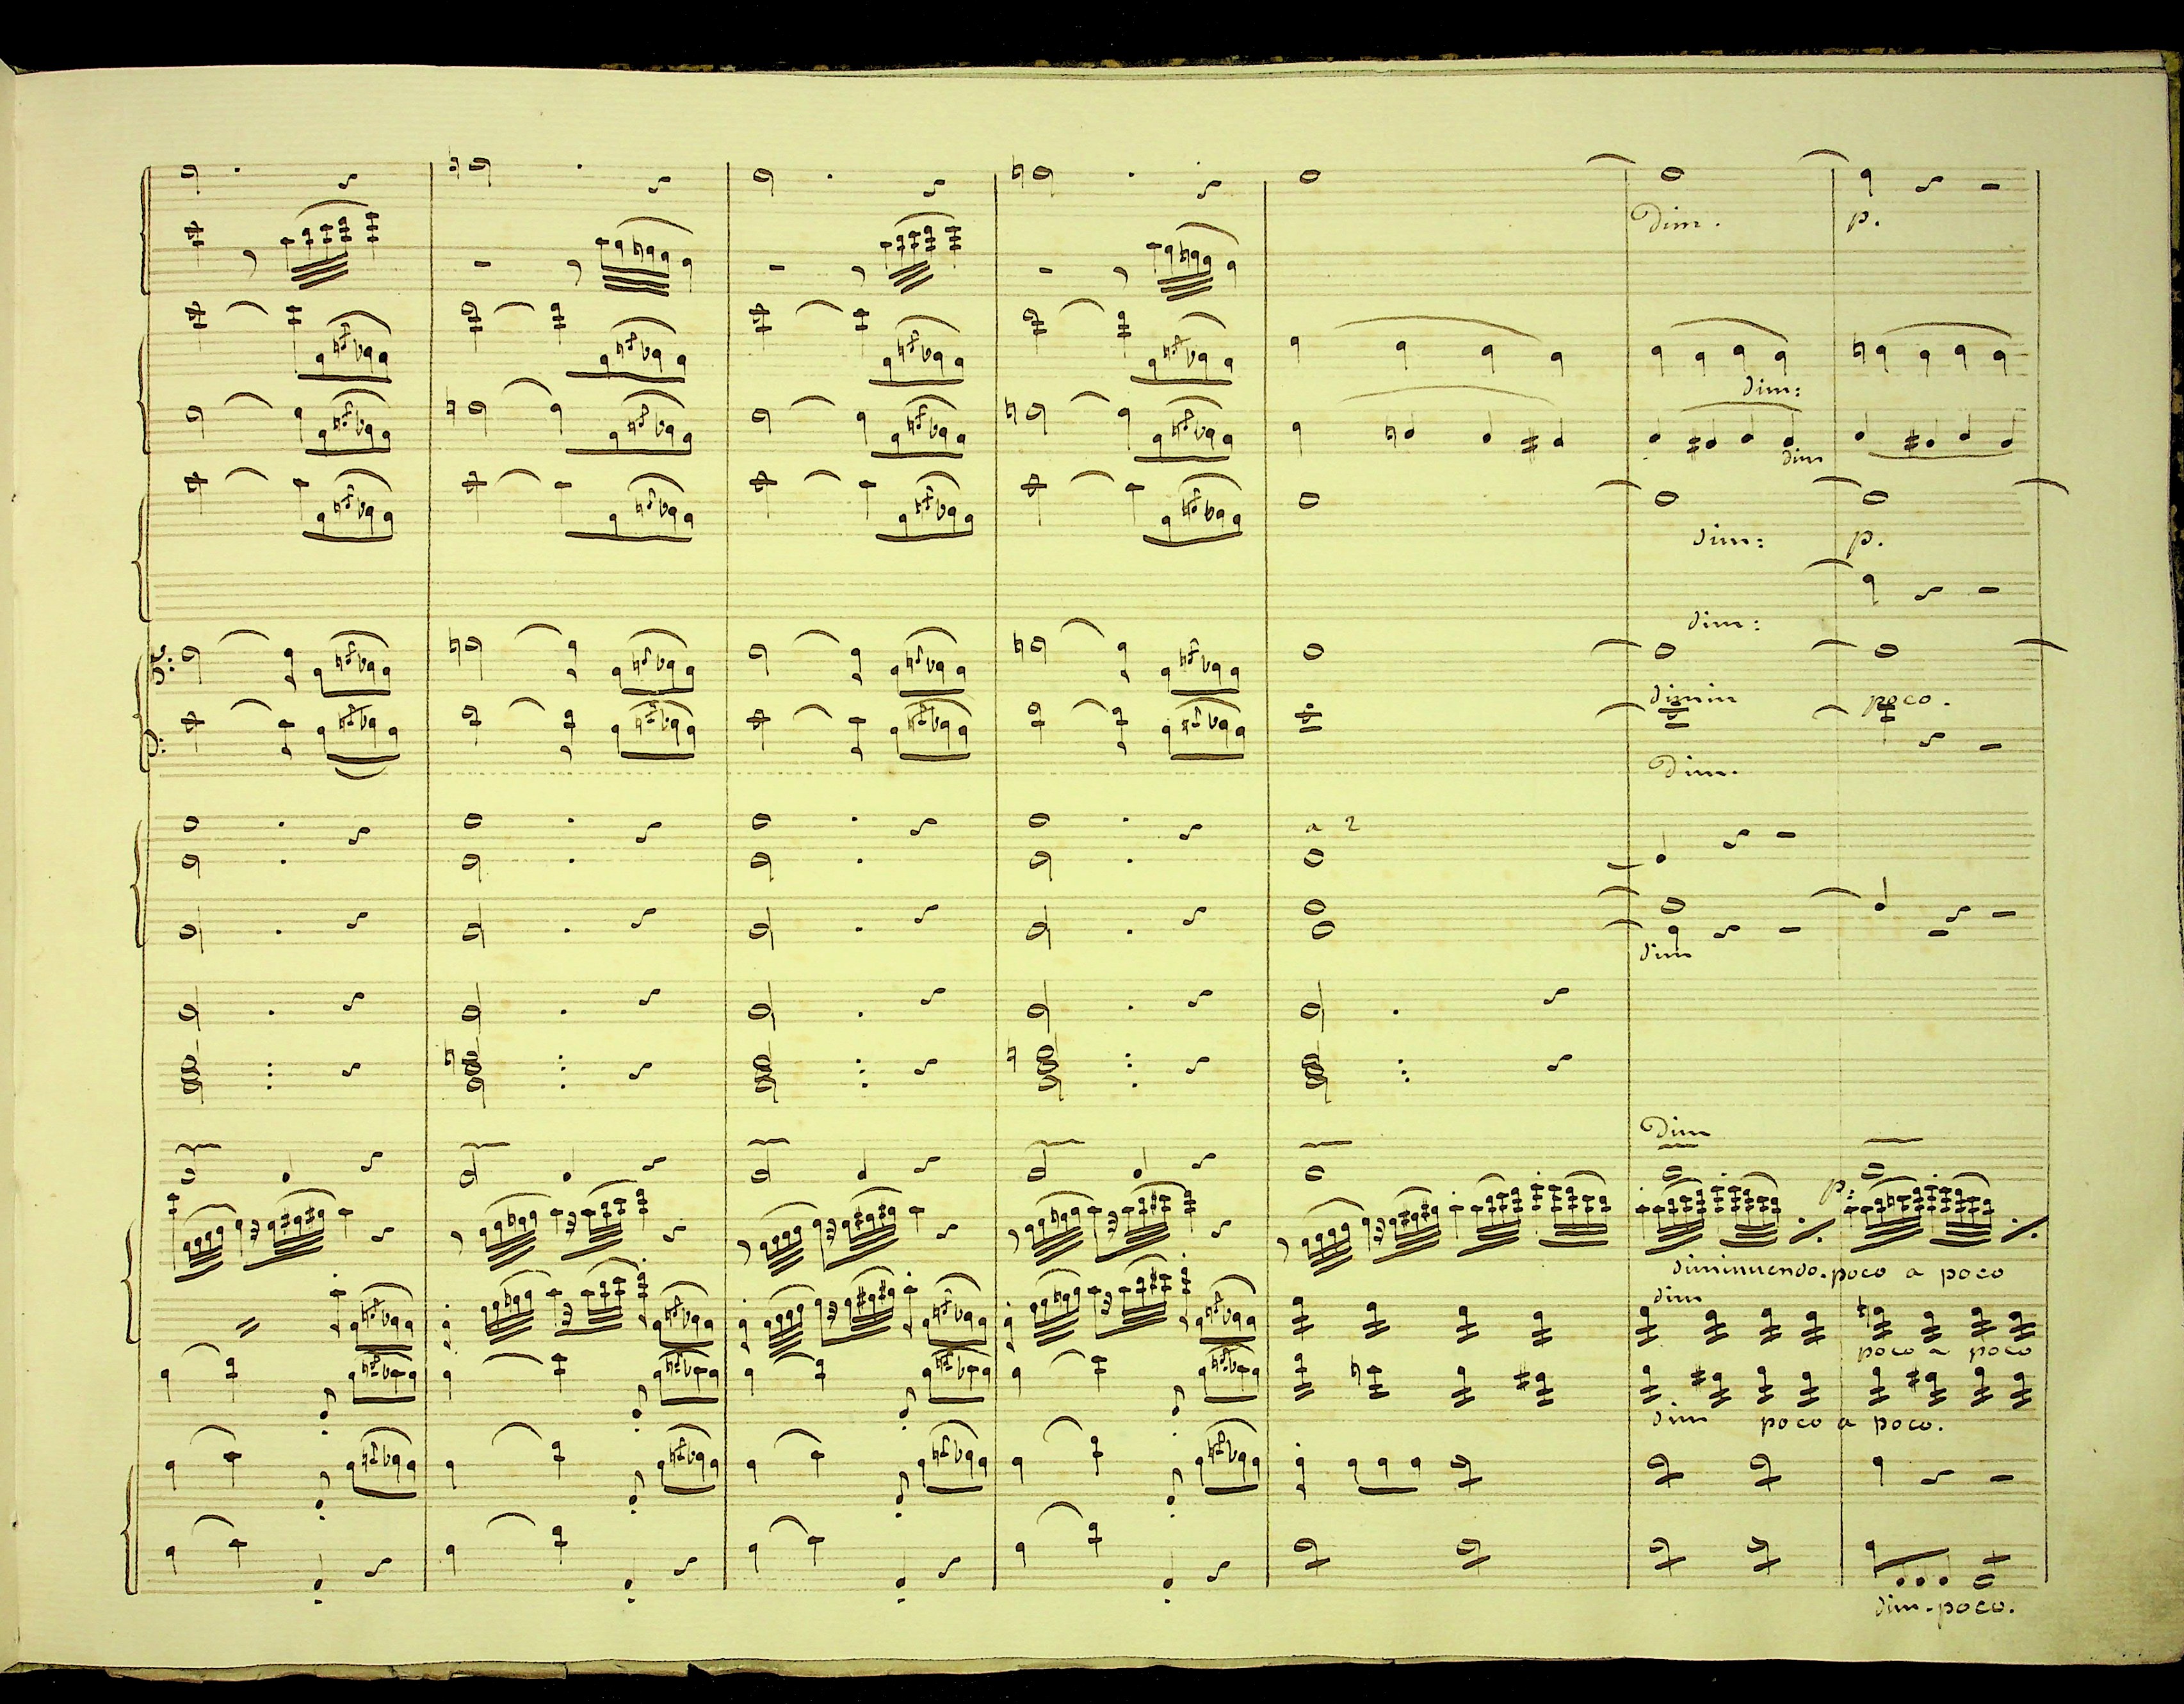 Dim. p.
dim:
dim
dim: p.
dim:
dimin poco.
Dim.
a 2
dim
Dim
p:
diminuendo. poco a poco
dim
poco a poco
dim poco a poco.
dim. poco.